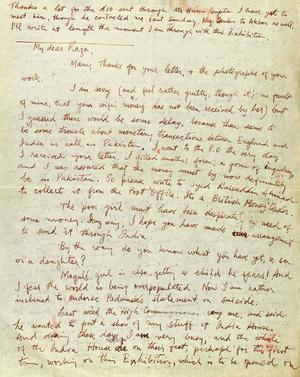 Thanks a lot for the £10 sent through Mr Haren Gupta I have yet to
meet him, though he contacted me last Sunday. My thanks to Akbar as well,
I'll write at length the moment I am through with this Exhibition.
My dear Raza,
Many thanks for your letter, & the photographs of your
work.
I am sorry (and feel rather guilty, though it's no fault
of mine, that your wife's money has not been received by her) but
I guessed there would be some delay, because there seems to
be some trouble about monetary transactions between England and
India as well as Pakistan. I went to the P.O the very day
I received your letter, I filled another form, a form of enquiry
and I was assured that the money must by now definitely
be in Pakistan. So please write to Syed
to collect it from the Post Office. Its a British Money Order.
The poor girl must have been desperately in need of
some money. Anyway, I hope you have made arrangement
to send it through India.
By the way do you know what you have got, a son
or a daughter?
girl is also getting a child he fears! And
I fear the world is being overpopulated. Now I am rather
inclined to endorse Padamsee's statement on Suicide.
Last week the High Commissioner rang me, and said
he wanted to put a show of my stuff at India House.
And during these days, I am very busy, and the whole
of the India House are on their feet, perhaps for the first
time, working on this Exhibition, which is to be opened on